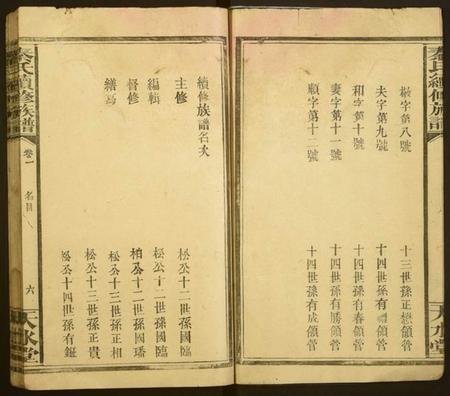 秦氏續修族譜
天水堂
字第八號　十三世孫正懋領管
夫字第九號　十四世孫有領管
和字第十號　十四世孫有春領管
妻字第十一號　十四世孫有勝領管
順字第十二號　十四世孫有成領管
續修族譜名次
主修　松公十二世孫國臨
編輯　松公十二世孫國臨
柏公十二世孫國璠
督修　松公十三世孫正相
松公十三世孫正貴
繕寫　松公十四世孫有鉦
秦氏續修族譜
卷一
名目
六
天水堂